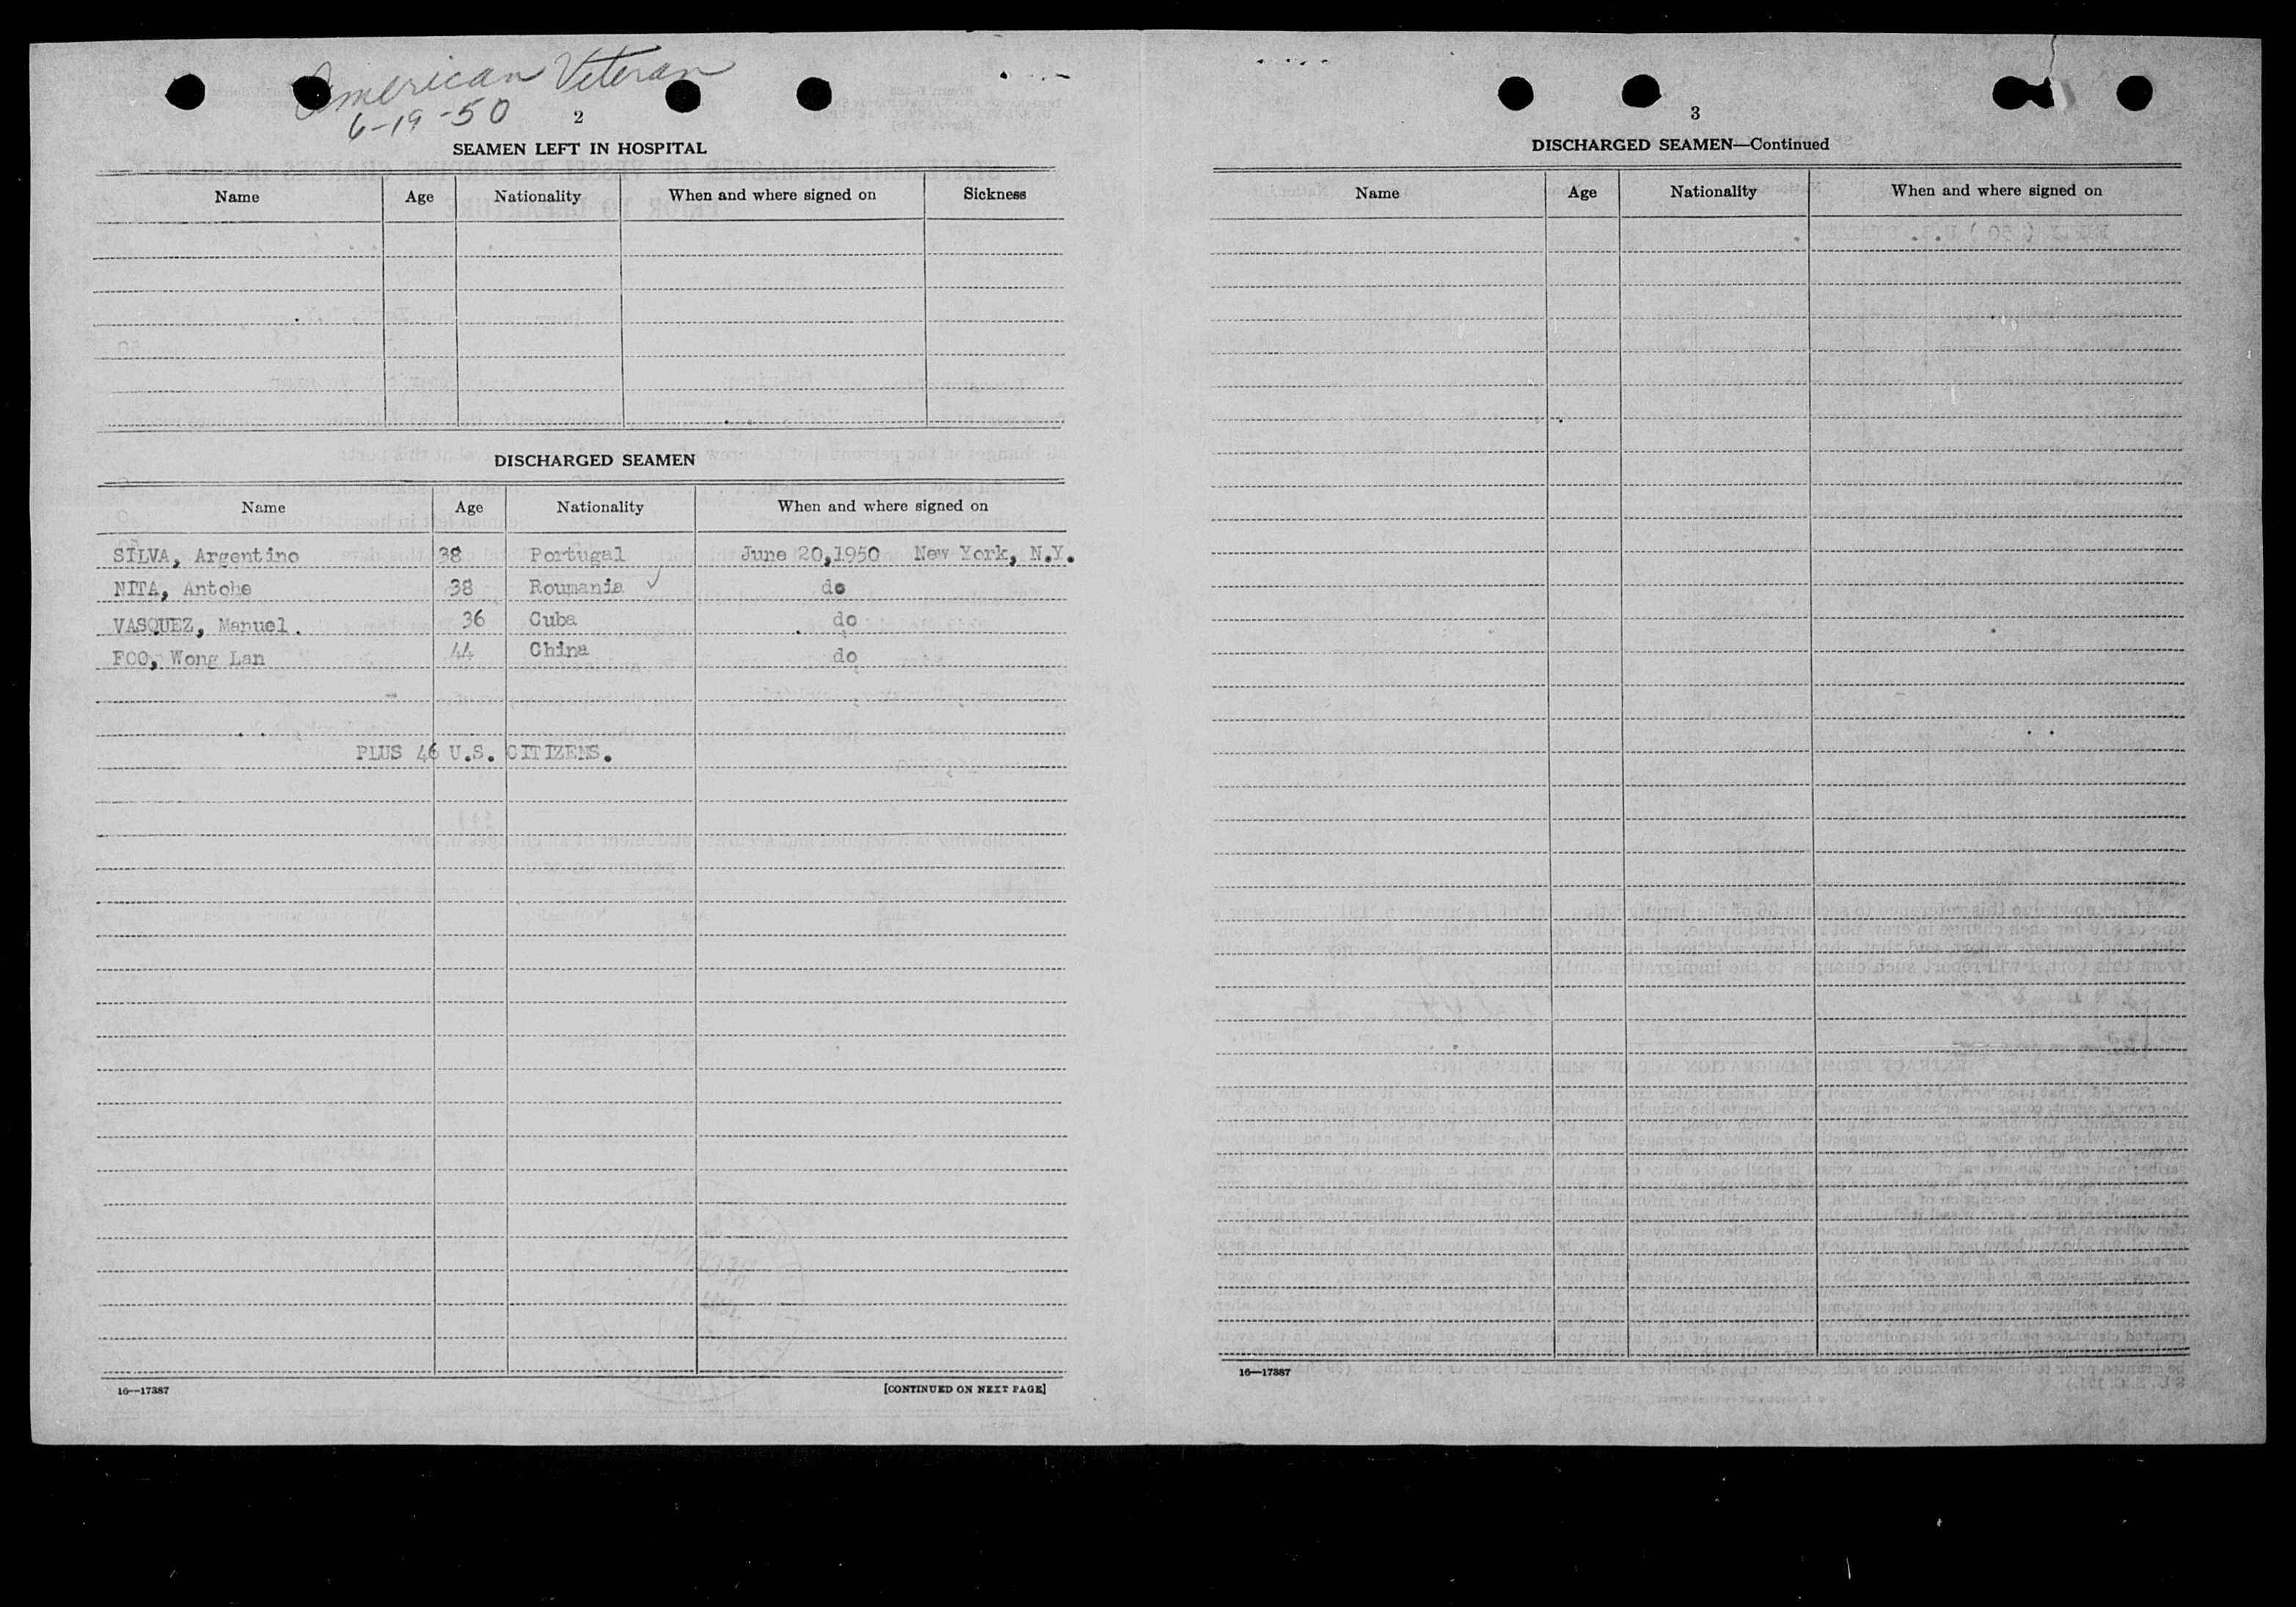 American Veteran
6-19-50
2
SEAMEN LEFT IN HOSPITAL
Name Age Nationality When and where signed on Sickness
DISCHARGED SEAMEN
Name Age Nationality When and where signed on
SILVA, Argentino 38 Portugal June 20,1950 New York, N.Y.
NITA, Antohe 38 Roumania ✓ do
VASQUEZ, Manuel. 36 Cuba do
FOO, Wong Lan 44 China do
PLUS 46 U.S. CITIZENS.
16—17387 [CONTINUED ON NEXT PAGE]
3
DISCHARGED SEAMEN—Continued
Name Age Nationality When and where signed on
16—17387